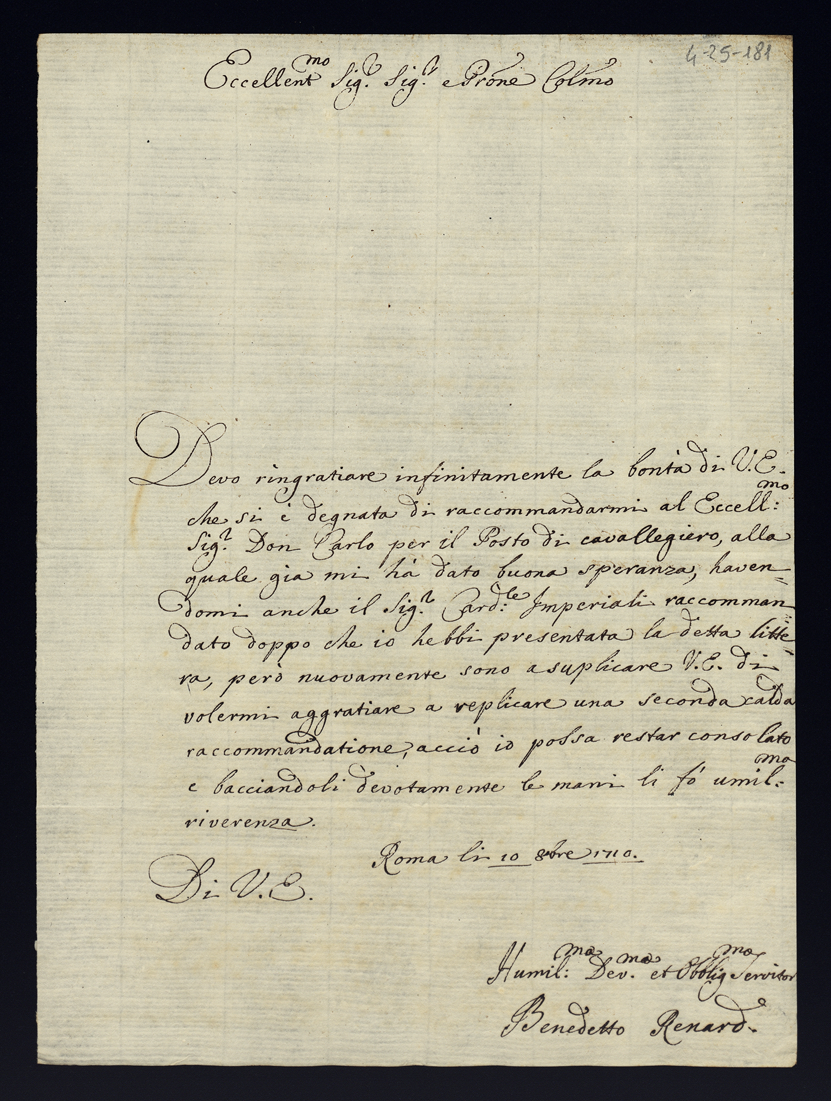 4-25-181
Eccellentmo Sigr. Sigr. e Prone Colmo
Devo ringratiare infinitamente la bontà di V.E.
che si è degnata di raccommandarmi al Eccell:mo
Sigr. Don Carlo per il Posto di cavallegiero, alla
quale gia mi hà dato buona speranza, haven=
domi anche il Sigr. Card:le Imperiali raccomman
dato doppo che io hebbi presentata la detta litte
ra, però nuovamente sono a suplicare V.E. di
volermi aggratiare a replicare una seconda calda
raccommandatione, acciò io possa restar consolato
e bacciandoli devotamente le mani li fò umil:ma
riverenza.
Roma li 10 8bre 1710.
Di V.E.
Humil:mo Dev.mo et Obbligmo Servitor
Benedetto Renard.